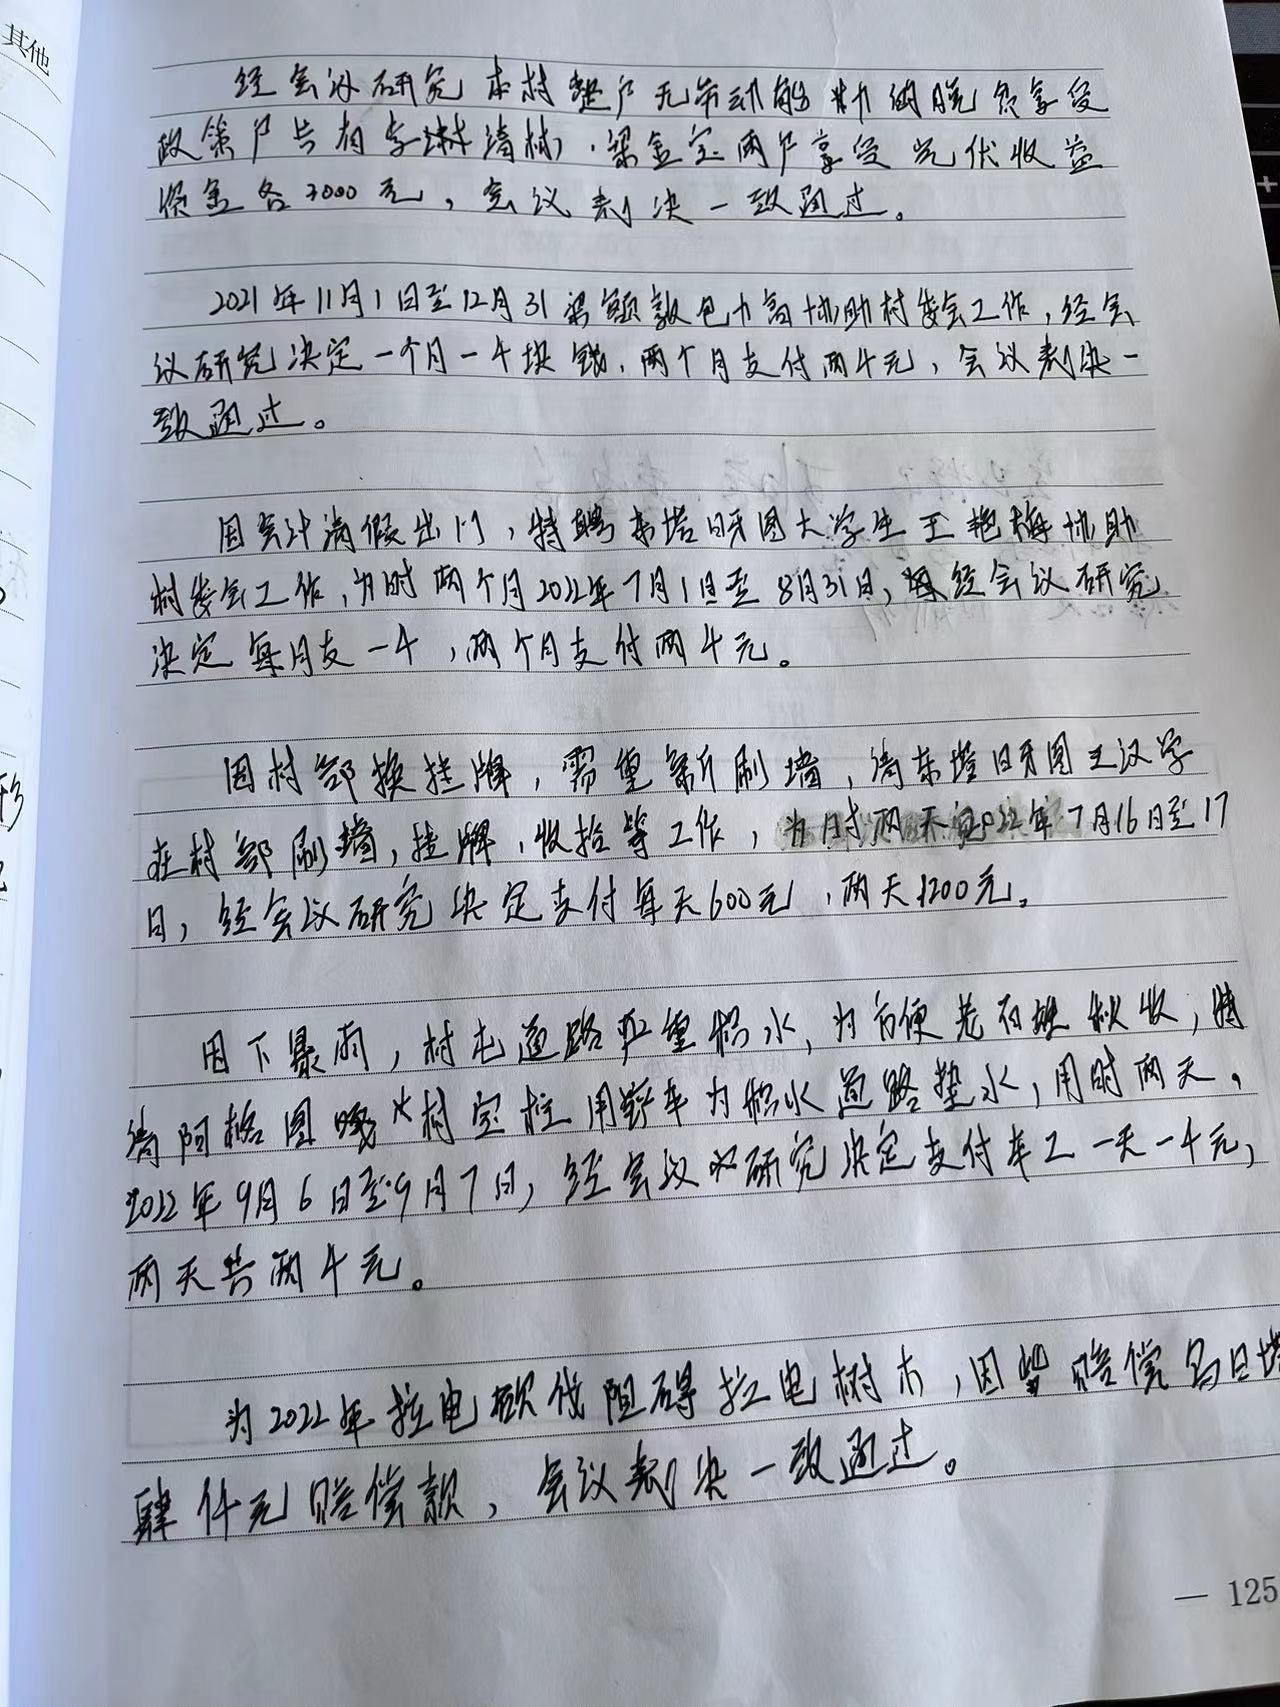 其他
经会议研究本村整户无劳动能力的脱贫享受
政策户共有李琳清、梁金宝两户享受光伏收益
资金各3000元，会议表决一致通过。
2021年11月1日至12月31 梁额敦包力高协助村委会工作，经会
议研究决定一个月一千块钱，两个月支付两千元，会议表决一
致通过。
因会计请假出门，特聘东塔日牙图大学生王艳梅协助
村委会工作，为时两个月2022年7月1日至8月31日，经会议研究
决定每月支一千，两个月支付两千元。
因村部换挂牌，需重新刷墙，请东塔日牙图王汉学
在村部刷墙，挂牌，收拾等工作，为时两天2022年7月16日至17
日，经会议研究决定支付每天600元，两天1200元。
因下暴雨，村屯道路严重积水，为方便老百姓秋收，特
请阿格图嘎村宝柱用铲车为积水道路垫水，用时两天。
2022年9月6日至9月7日，经会议研究决定支付车工一天一千元，
两天共两千元。
为2022年拉电砍伐阻碍拉电树木，因此赔偿乌日塔
肆仟元赔偿款，会议表决一致通过。
— 125